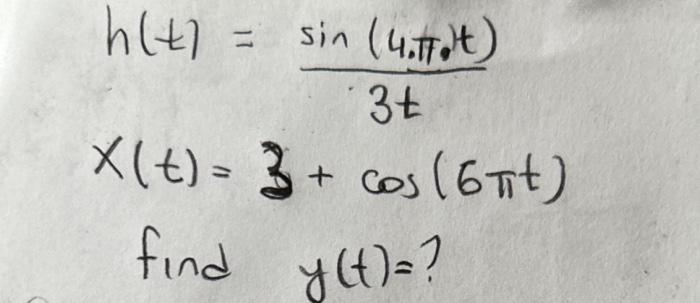 h(t) = sin (4.π.t) / 3t
x(t) = 3 + cos(6πt)
find y(t)=?